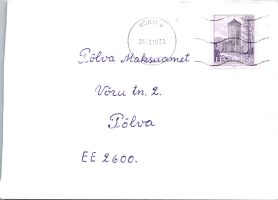 VÕRU
Põlva Maksuamet
Võru tn. 2.
Põlva
EE 2600.